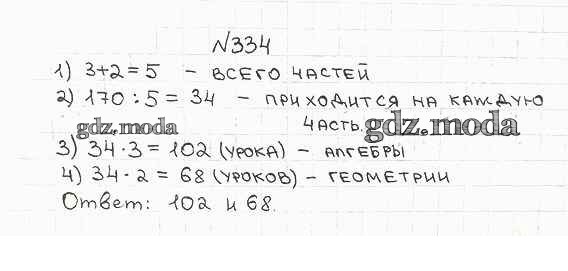 №334
1) 3+2=5 – всего частей
2) 170:5= 34 – приходится на каждую
часть.
gdz.moda
gdz.moda
3) 34·3=102 (урока) – алгебры
4) 34·2 = 68 (уроков) – геометрии
Ответ: 102 и 68.